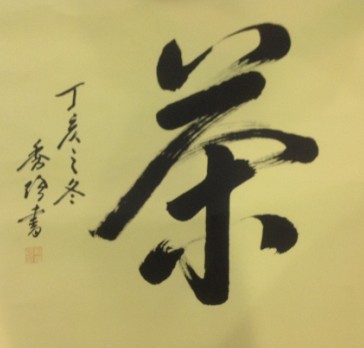 茶
丁亥之冬
秀玲書